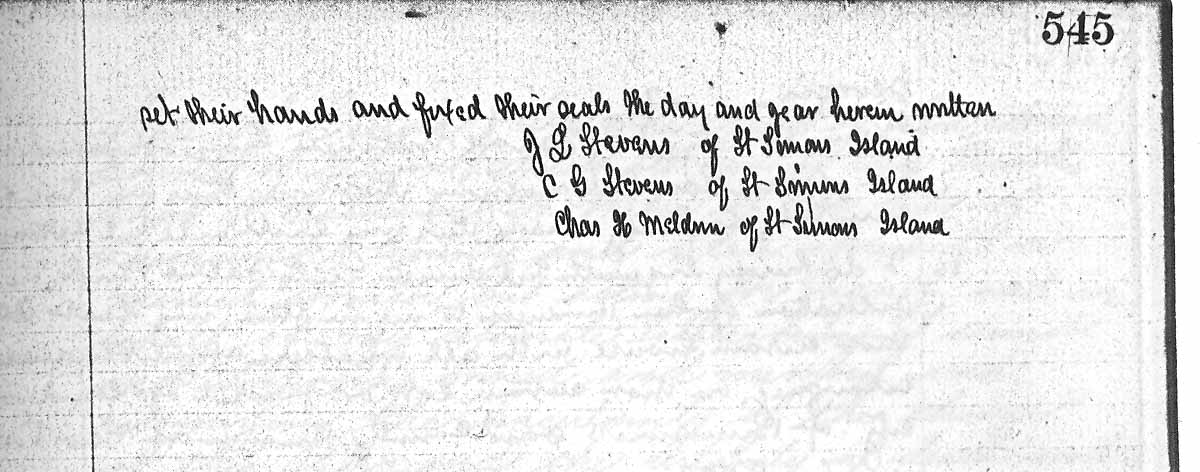 545
set their hands and fixed their seals the day and year herein written
J L Stevens of St Simons Island
C G Stevens of St Simons Island
Chas H Meldrum of St Simons Island